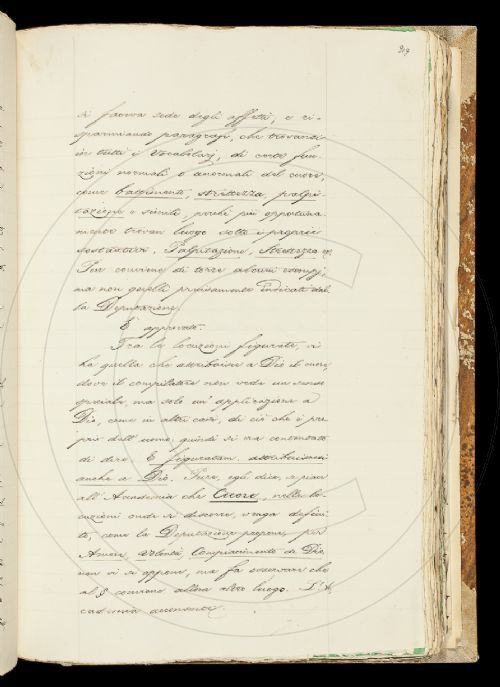 si faceva sede degli affetti, e ri-
sparmiando paragrafi, che trovansi
in tutti i Vocabolarj, di certe fun-
zioni normali o anormali del cuore,
come battimento, strettezza, palpi-
tazione e simili, perchè più opportuna-
mente trovan luogo sotto i proprii
sostantivi, Palpitazione, Strettezza &c.
Pur conviene di torre alcuni esempj,
ma non quelli precisamente indicati dal-
la Deputazione.
È approvato.
Tra le locuzioni figurate, vi
ha quella che attribuisce a Dio il cuore,
dove il compilatore non vede un senso
speciale, ma solo un'applicazione a
Dio, come in altri casi, di ciò che è pro-
prio dell'uomo: quindi si era contentato
di dire. E figuratam. attribuiscesi
anche a Dio. Pure, egli dice, se piace
all'Accademia che Cuore, nelle lo-
cuzioni onde si discorre, venga defini-
to, come la Deputazione propone, per
Amore, Volontà, Compiacimento di Dio,
non vi si oppone, ma fa osservare che
al § conviene allora altro luogo. L'Ac-
cademia acconsente.